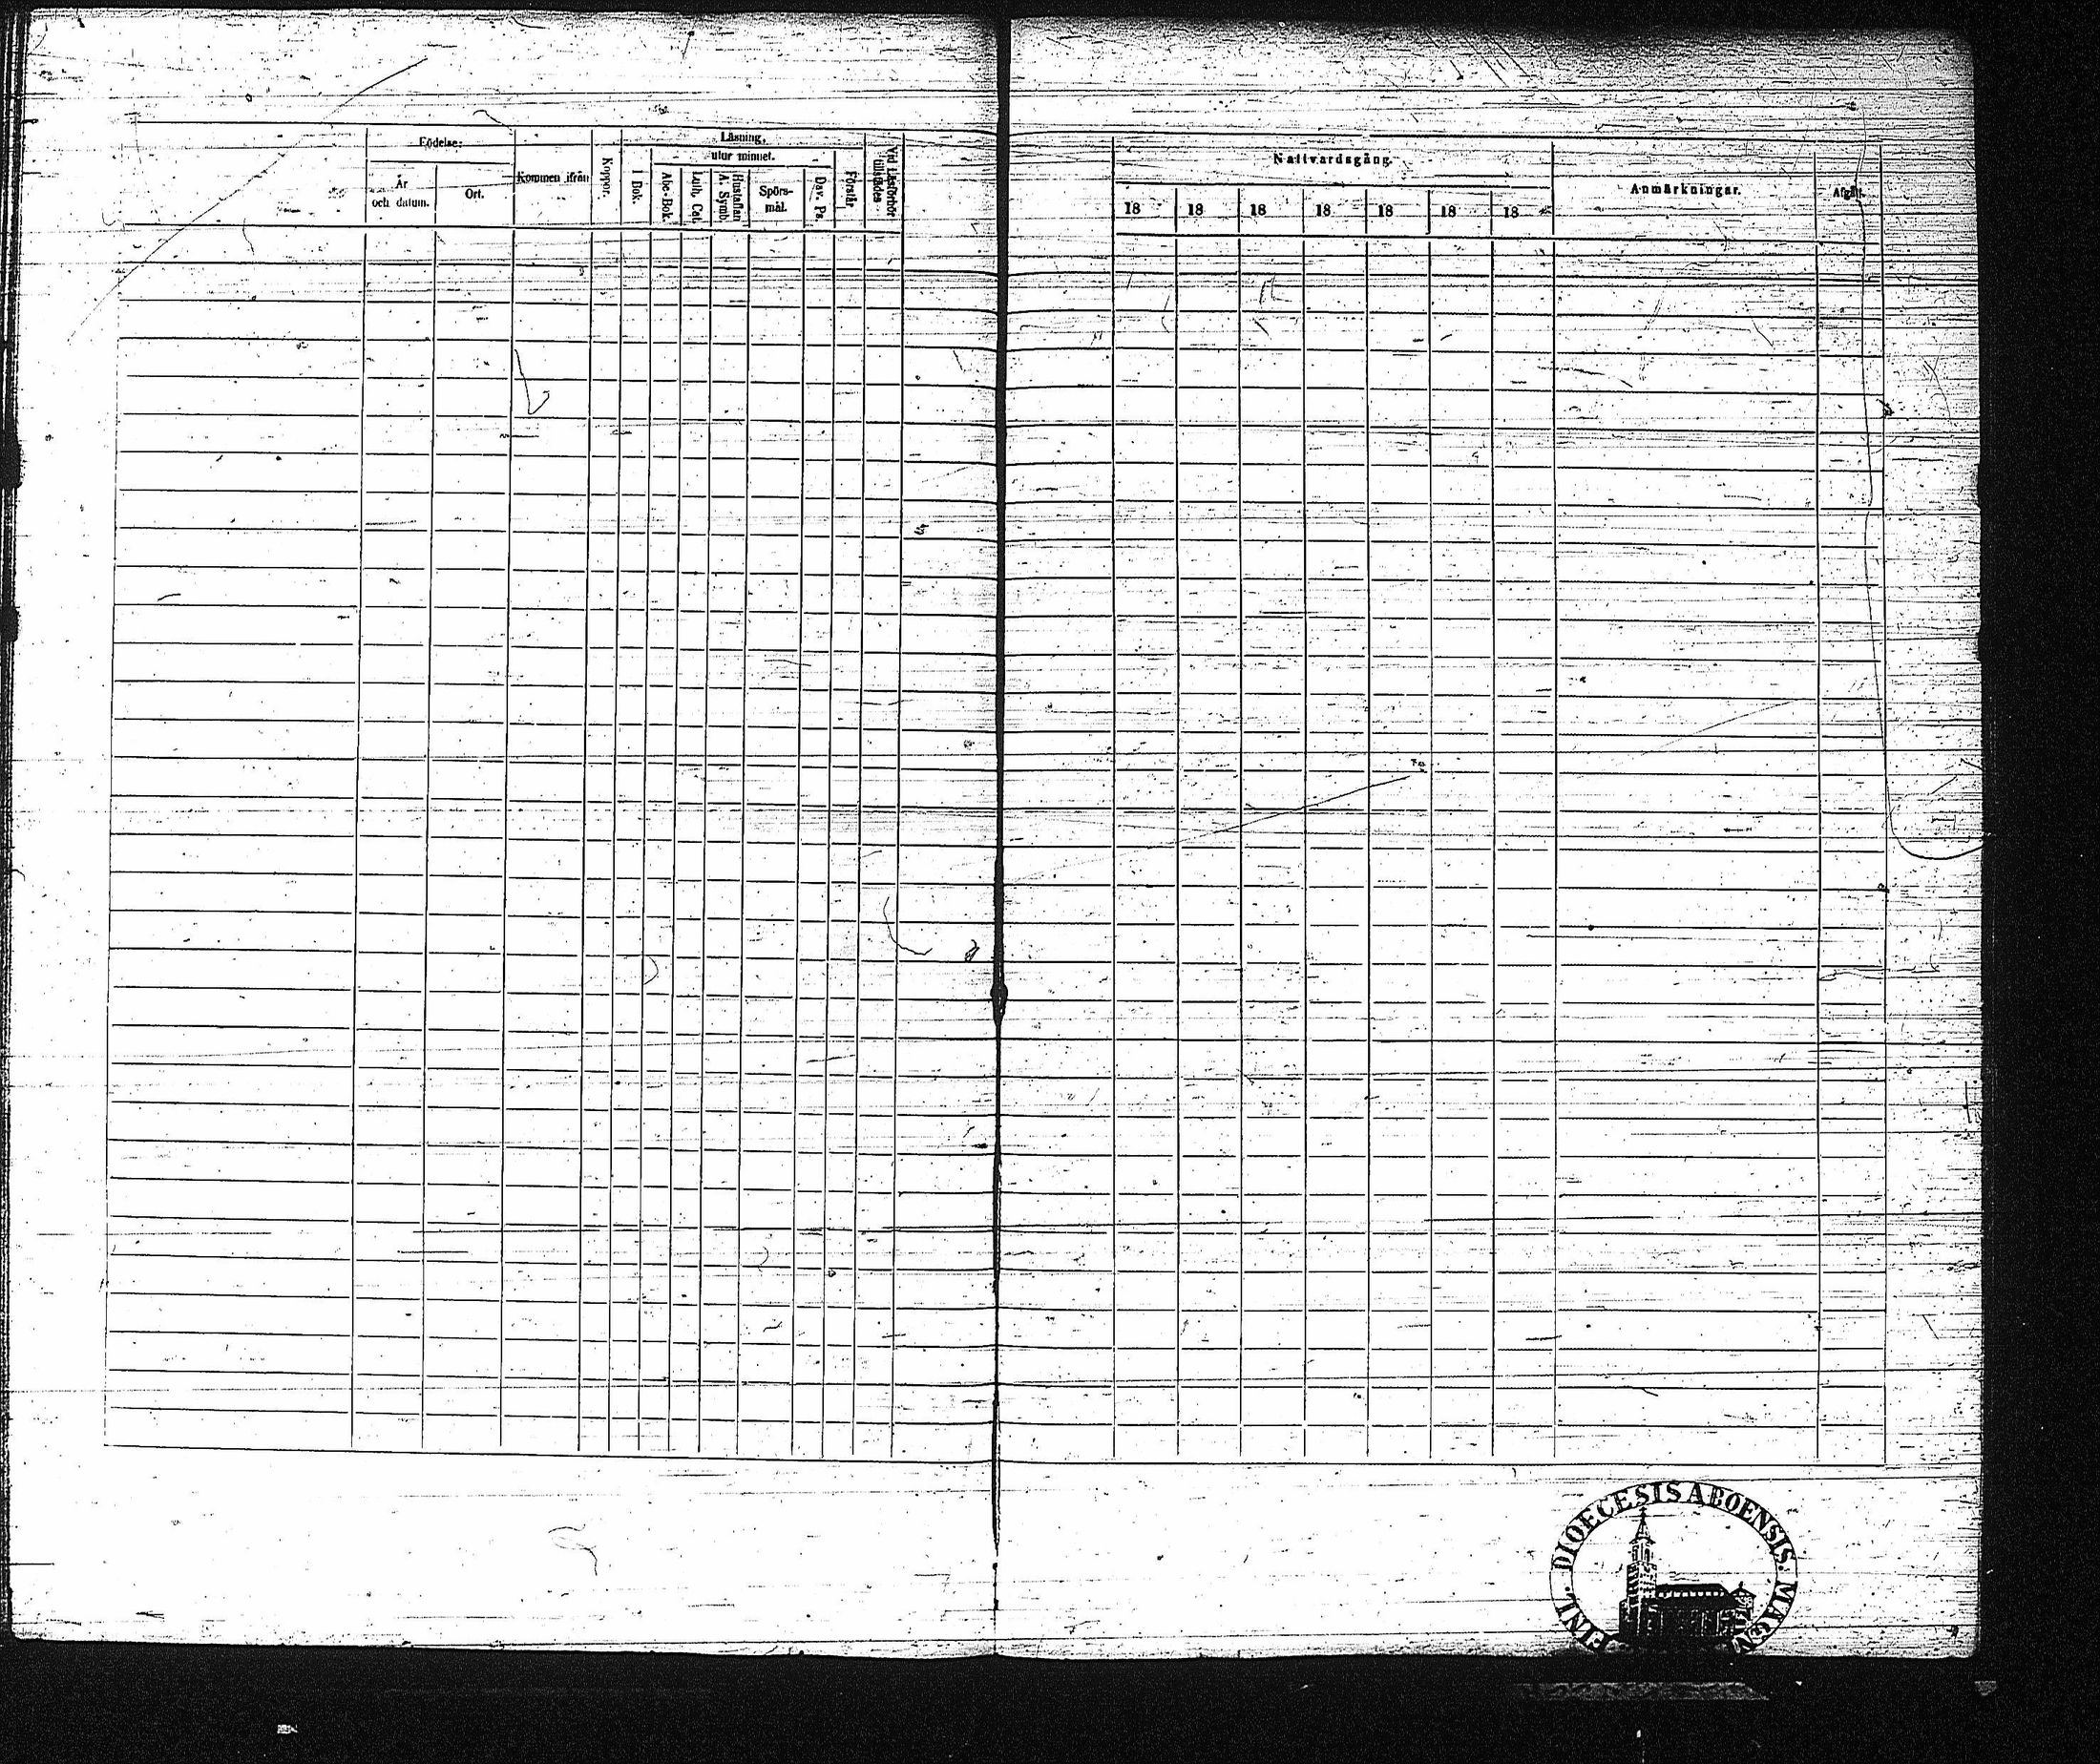 Födelse:
År
och datum.
Ort.
Kommen ifrån
Koppor.
Läsning,
utur minnet.
I Bok.
Abc-Bok.
Luth. Cat.
Hustaflan
A. Symb.
Spörs-
mål.
Dav. Ps.
Förstår.
Vid Läsförhör
tillstädes
Nattvardsgång.
18 18 18 18 18 18 18
Anmärkningar.
Afgått.
FINL. DIOECESIS ABOENSIS. MAGN